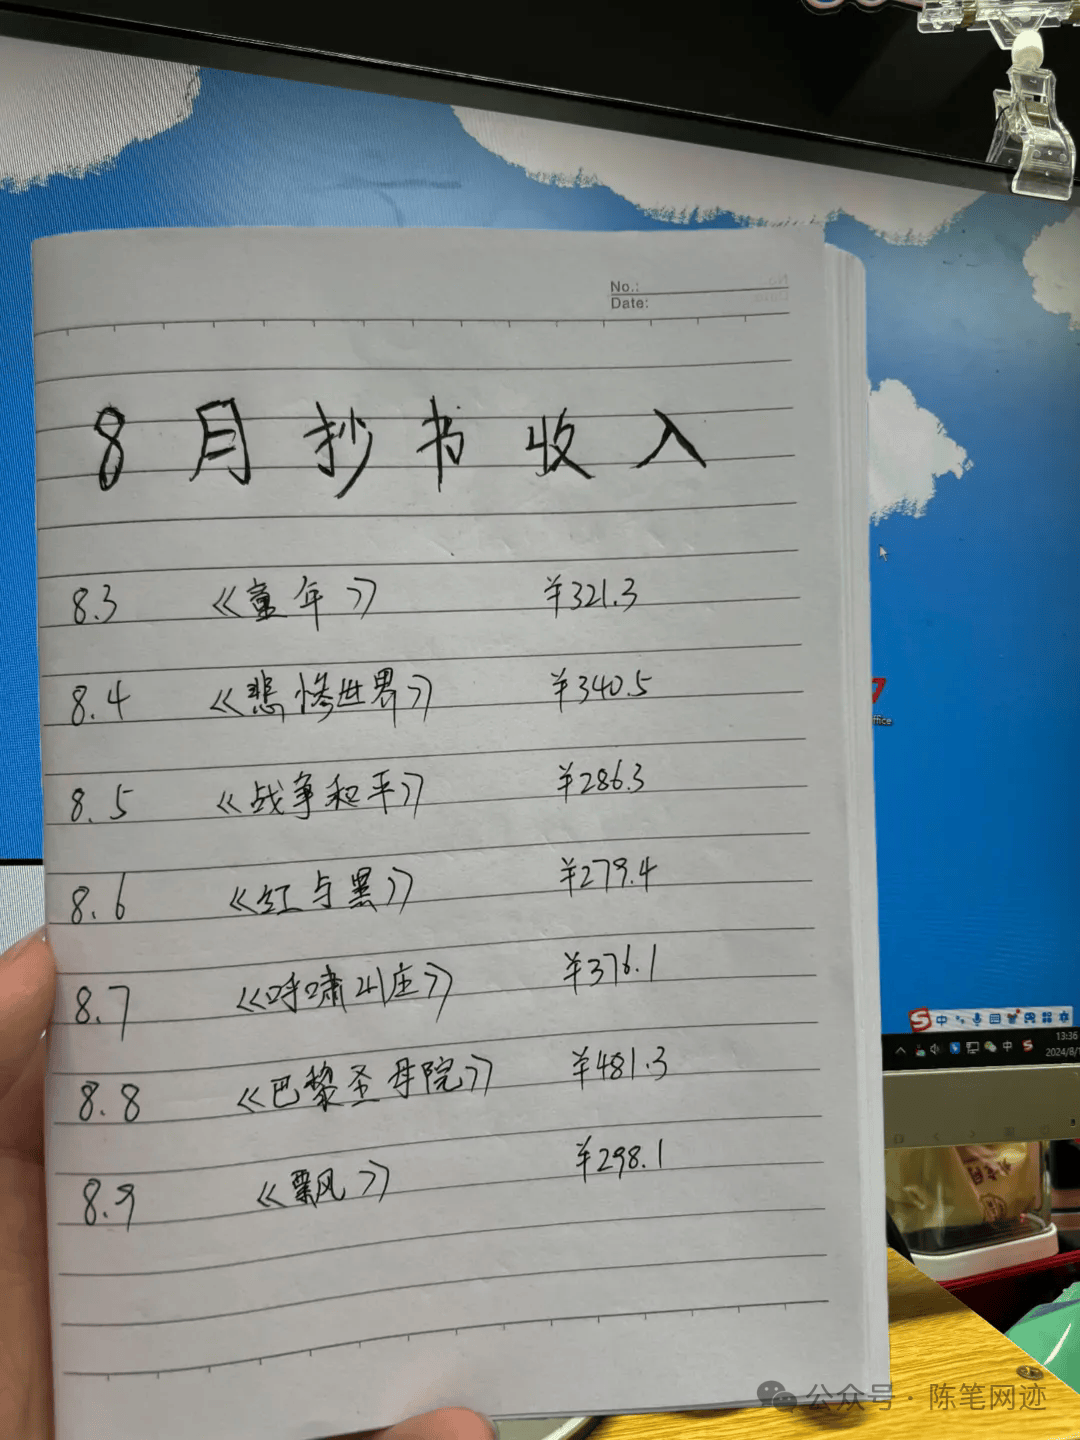 No.:
Date:
8月抄书收入
8.3 《童年》 ¥321.3
8.4 《悲惨世界》 ¥340.5
8.5 《战争和平》 ¥286.3
8.6 《红与黑》 ¥279.4
8.7 《呼啸山庄》 ¥376.1
8.8 《巴黎圣母院》 ¥481.3
8.9 《飘风》 ¥298.1
ffice
中
中
13:36
2024/8/1
公众号·陈笔网迹